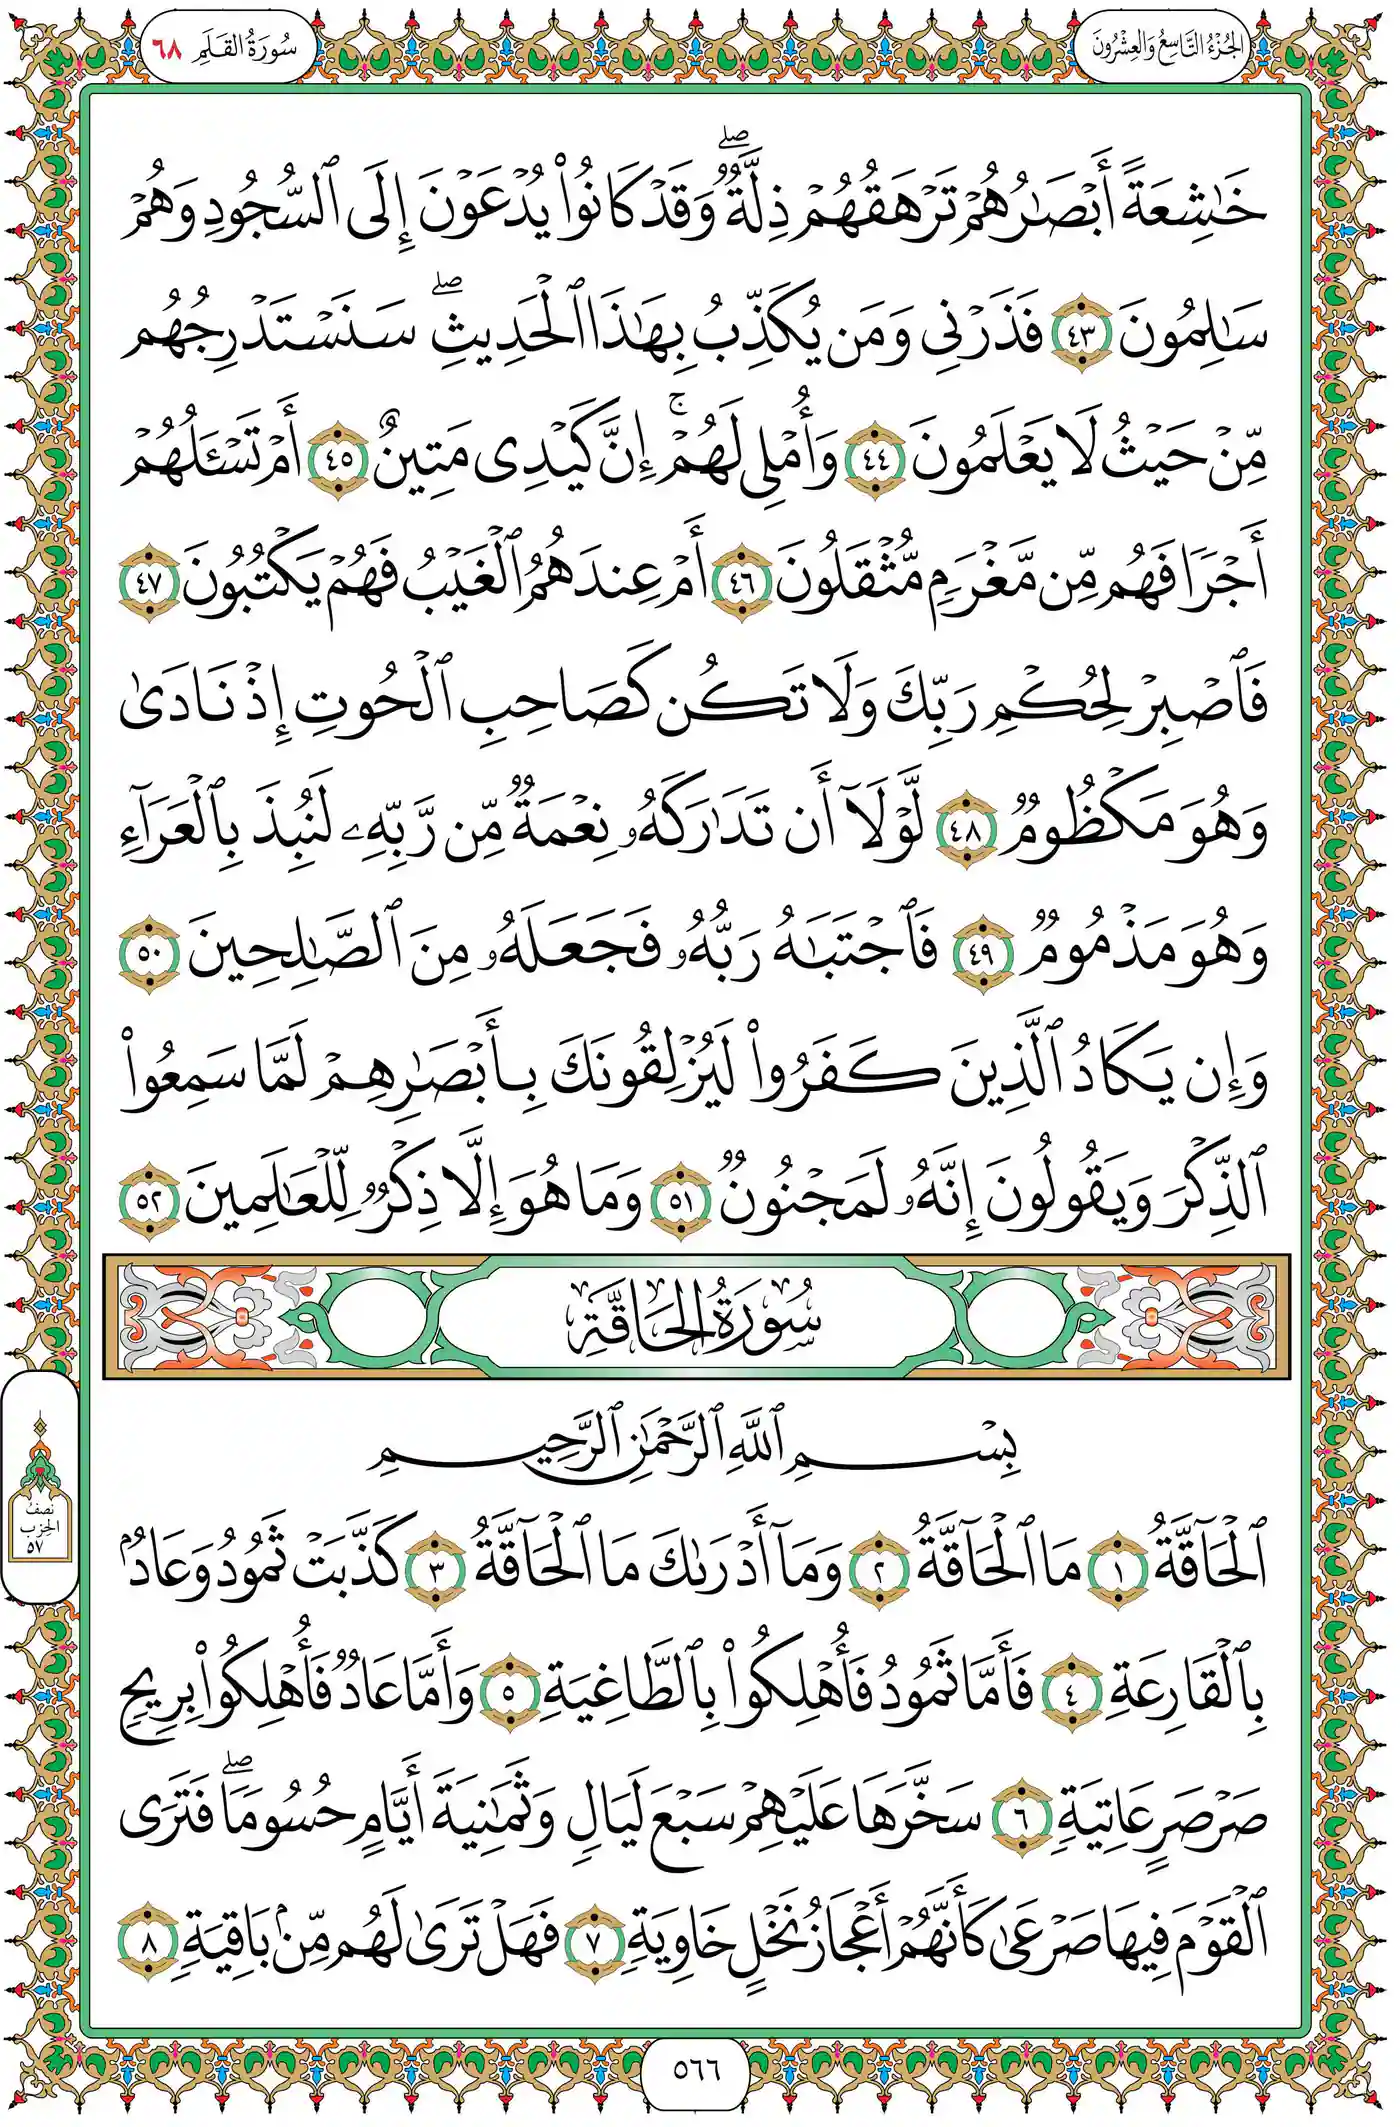 الجُزْءُ التَّاسِعُ وَالعِشْرُونَ
سُورَةُ القَلَمِ ٦٨
خَٰشِعَةً أَبْصَٰرُهُمْ تَرْهَقُهُمْ ذِلَّةٌۖ وَقَدْ كَانُوا۟ يُدْعَوْنَ إِلَى ٱلسُّجُودِ وَهُمْ
سَٰلِمُونَ ٤٣ فَذَرْنِى وَمَن يُكَذِّبُ بِهَٰذَا ٱلْحَدِيثِۖ سَنَسْتَدْرِجُهُم
مِّنْ حَيْثُ لَا يَعْلَمُونَ ٤٤ وَأُمْلِى لَهُمْۚ إِنَّ كَيْدِى مَتِينٌ ٤٥ أَمْ تَسْـَٔلُهُمْ
أَجْرًا فَهُم مِّن مَّغْرَمٍ مُّثْقَلُونَ ٤٦ أَمْ عِندَهُمُ ٱلْغَيْبُ فَهُمْ يَكْتُبُونَ ٤٧
فَٱصْبِرْ لِحُكْمِ رَبِّكَ وَلَا تَكُن كَصَاحِبِ ٱلْحُوتِ إِذْ نَادَىٰ
وَهُوَ مَكْظُومٌ ٤٨ لَّوْلَآ أَن تَدَٰرَكَهُۥ نِعْمَةٌ مِّن رَّبِّهِۦ لَنُبِذَ بِٱلْعَرَآءِ
وَهُوَ مَذْمُومٌ ٤٩ فَٱجْتَبَٰهُ رَبُّهُۥ فَجَعَلَهُۥ مِنَ ٱلصَّٰلِحِينَ ٥٠
وَإِن يَكَادُ ٱلَّذِينَ كَفَرُوا۟ لَيُزْلِقُونَكَ بِأَبْصَٰرِهِمْ لَمَّا سَمِعُوا۟
ٱلذِّكْرَ وَيَقُولُونَ إِنَّهُۥ لَمَجْنُونٌ ٥١ وَمَا هُوَ إِلَّا ذِكْرٌ لِّلْعَٰلَمِينَ ٥٢
سُورَةُ الحَاقَّةِ
بِسْمِ ٱللَّهِ ٱلرَّحْمَٰنِ ٱلرَّحِيمِ
ٱلْحَآقَّةُ ١ مَا ٱلْحَآقَّةُ ٢ وَمَآ أَدْرَىٰكَ مَا ٱلْحَآقَّةُ ٣ كَذَّبَتْ ثَمُودُ وَعَادٌۢ
بِٱلْقَارِعَةِ ٤ فَأَمَّا ثَمُودُ فَأُهْلِكُوا۟ بِٱلطَّاغِيَةِ ٥ وَأَمَّا عَادٌ فَأُهْلِكُوا۟ بِرِيحٍ
صَرْصَرٍ عَاتِيَةٍ ٦ سَخَّرَهَا عَلَيْهِمْ سَبْعَ لَيَالٍ وَثَمَٰنِيَةَ أَيَّامٍ حُسُومًاۖ فَتَرَى
ٱلْقَوْمَ فِيهَا صَرْعَىٰ كَأَنَّهُمْ أَعْجَازُ نَخْلٍ خَاوِيَةٍ ٧ فَهَلْ تَرَىٰ لَهُم مِّنۢ بَاقِيَةٍ ٨
نصف
الحزب
٥٧
٥٦٦